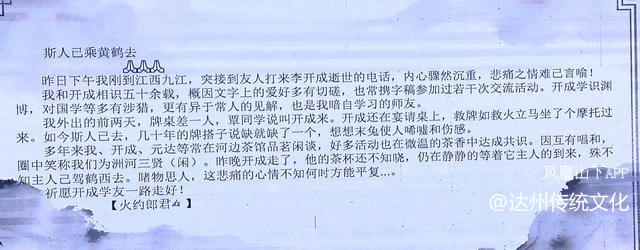 斯人已乘黄鹤去
昨日下午我刚到江西九江，突接到友人打来李开成逝世的电话，内心骤然沉重，悲痛之情难已言喻！
我和开成相识五十余载，概因文字上的爱好多有切磋，也常携字稿参加过若干次交流活动。开成学识渊
博，对国学等多有涉猎，更有异于常人的见解，也是我暗自学习的师友。
我外出的前两天，牌桌差一人，覃同学说叫开成来。开成还在宴请桌上，救牌如救火立马坐了个摩托过
来。如今斯人已去，几十年的牌搭子说缺就缺了一个，想想末兔使人唏嘘和伤感。
多年来我、开成、元达等常在河边茶馆品茗闲谈，好多活动也在微温的茶香中达成共识。因互有唱和，
圈中笑称我们为洲河三贤（闲）。昨晚开成走了，他的茶杯还不知晓，仍在静静的等着它主人的到来，殊不
知主人己驾鹤西去。睹物思人，这悲痛的心情不知何时方能平复...。
祈愿开成学友一路走好！
【火约郎君✍】
凤凰山下APP
@达州传统文化